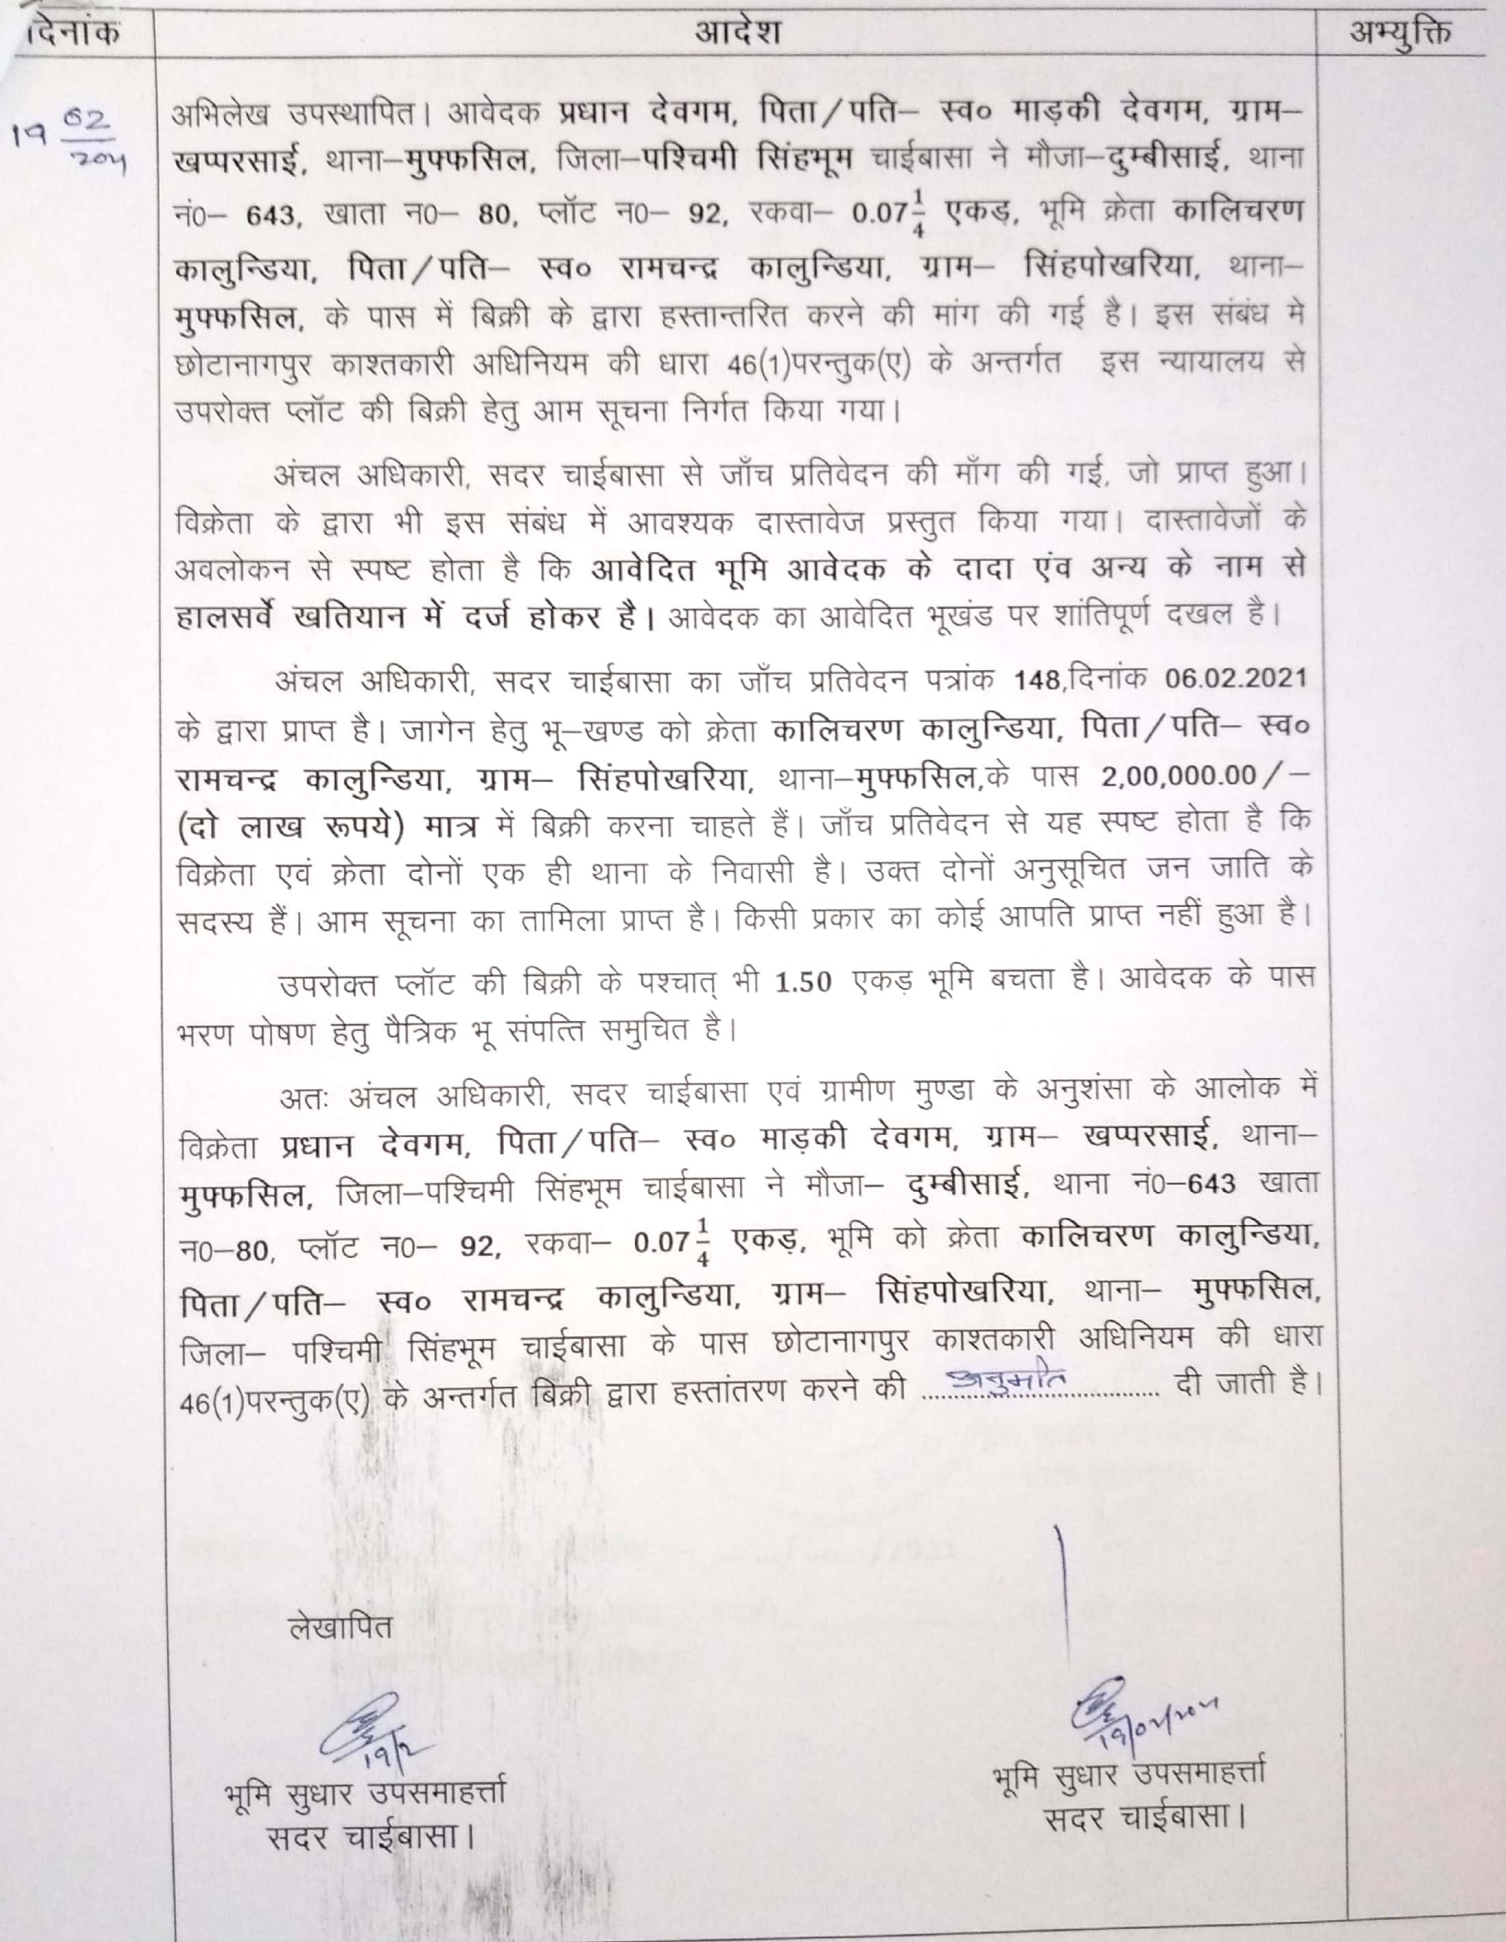 दिनांक आदेश अभ्युक्ति
19 02
अभिलेख उपस्थापित। आवेदक प्रधान देवगम, पिता/पति– स्व० माड़की देवगम, ग्राम–
खप्परसाई, थाना–मुफ्फसिल, जिला–पश्चिमी सिंहभूम चाईबासा ने मौजा–दुम्बीसाई, थाना
नं0– 643, खाता न0– 80, प्लॉट न0– 92, रकवा– 0.07 1/4 एकड़, भूमि क्रेता कालिचरण
कालुन्डिया, पिता/पति– स्व० रामचन्द्र कालुन्डिया, ग्राम– सिंहपोखरिया, थाना–
मुफ्फसिल, के पास में बिक्री के द्वारा हस्तान्तरित करने की मांग की गई है। इस संबंध मे
छोटानागपुर काश्तकारी अधिनियम की धारा 46(1)परन्तुक(ए) के अन्तर्गत इस न्यायालय से
उपरोक्त प्लॉट की बिक्री हेतु आम सूचना निर्गत किया गया।
अंचल अधिकारी, सदर चाईबासा से जाँच प्रतिवेदन की माँग की गई, जो प्राप्त हुआ।
विक्रेता के द्वारा भी इस संबंध में आवश्यक दास्तावेज प्रस्तुत किया गया। दास्तावेजों के
अवलोकन से स्पष्ट होता है कि आवेदित भूमि आवेदक के दादा एंव अन्य के नाम से
हालसर्वे खतियान में दर्ज होकर है। आवेदक का आवेदित भूखंड पर शांतिपूर्ण दखल है।
अंचल अधिकारी, सदर चाईबासा का जाँच प्रतिवेदन पत्रांक 148,दिनांक 06.02.2021
के द्वारा प्राप्त है। जागेन हेतु भू–खण्ड को क्रेता कालिचरण कालुन्डिया, पिता/पति– स्व०
रामचन्द्र कालुन्डिया, ग्राम– सिंहपोखरिया, थाना–मुफ्फसिल,के पास 2,00,000.00/–
(दो लाख रूपये) मात्र में बिक्री करना चाहते हैं। जाँच प्रतिवेदन से यह स्पष्ट होता है कि
विक्रेता एवं क्रेता दोनों एक ही थाना के निवासी है। उक्त दोनों अनुसूचित जन जाति के
सदस्य हैं। आम सूचना का तामिला प्राप्त है। किसी प्रकार का कोई आपति प्राप्त नहीं हुआ है।
उपरोक्त प्लॉट की बिक्री के पश्चात् भी 1.50 एकड़ भूमि बचता है। आवेदक के पास
भरण पोषण हेतु पैत्रिक भू संपत्ति समुचित है।
अतः अंचल अधिकारी, सदर चाईबासा एवं ग्रामीण मुण्डा के अनुशंसा के आलोक में
विक्रेता प्रधान देवगम, पिता/पति– स्व० माड़की देवगम, ग्राम– खप्परसाई, थाना–
मुफ्फसिल, जिला–पश्चिमी सिंहभूम चाईबासा ने मौजा– दुम्बीसाई, थाना नं0–643 खाता
न0–80, प्लॉट न0– 92, रकवा– 0.07 1/4 एकड़, भूमि को क्रेता कालिचरण कालुन्डिया,
पिता/पति– स्व० रामचन्द्र कालुन्डिया, ग्राम– सिंहपोखरिया, थाना– मुफ्फसिल,
जिला– पश्चिमी सिंहभूम चाईबासा के पास छोटानागपुर काश्तकारी अधिनियम की धारा
46(1)परन्तुक(ए) के अन्तर्गत बिक्री द्वारा हस्तांतरण करने की ....अनुमति.... दी जाती है।
लेखापित
19/2 19/02/2021
भूमि सुधार उपसमाहर्त्ता भूमि सुधार उपसमाहर्त्ता
सदर चाईबासा। सदर चाईबासा।